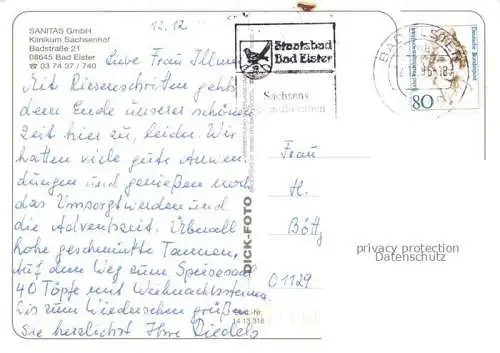 SANITAS GmbH
Klinikum Sachsenhof
Badstraße 21
08645 Bad Elster
☎ 03 74 37 / 740
12.12.
Liebe Frau
Mit Riesenschritten geht's
dem Ende unserer schönen
Zeit hier zu, leider. Wir
hatten viele gute Anwen-
dungen und genießen noch
das Umsorgtwerden und
die Adventszeit. Überall
hohe geschmückte Tannen,
Auf dem Weg zum Speisesaal
40 Töpfe mit Weihnachtssternen.
Bis zum Wiedersehen grüßen
Sie herzlichst Ihre Riedels
DICK-FOTO
14 13 316
Staatsbad
Bad Elster
Sachsens
BAD ELSTER
Deutsche Bundespost
80
Frau
H.
Böttg
01129
privacy protection
Datenschutz